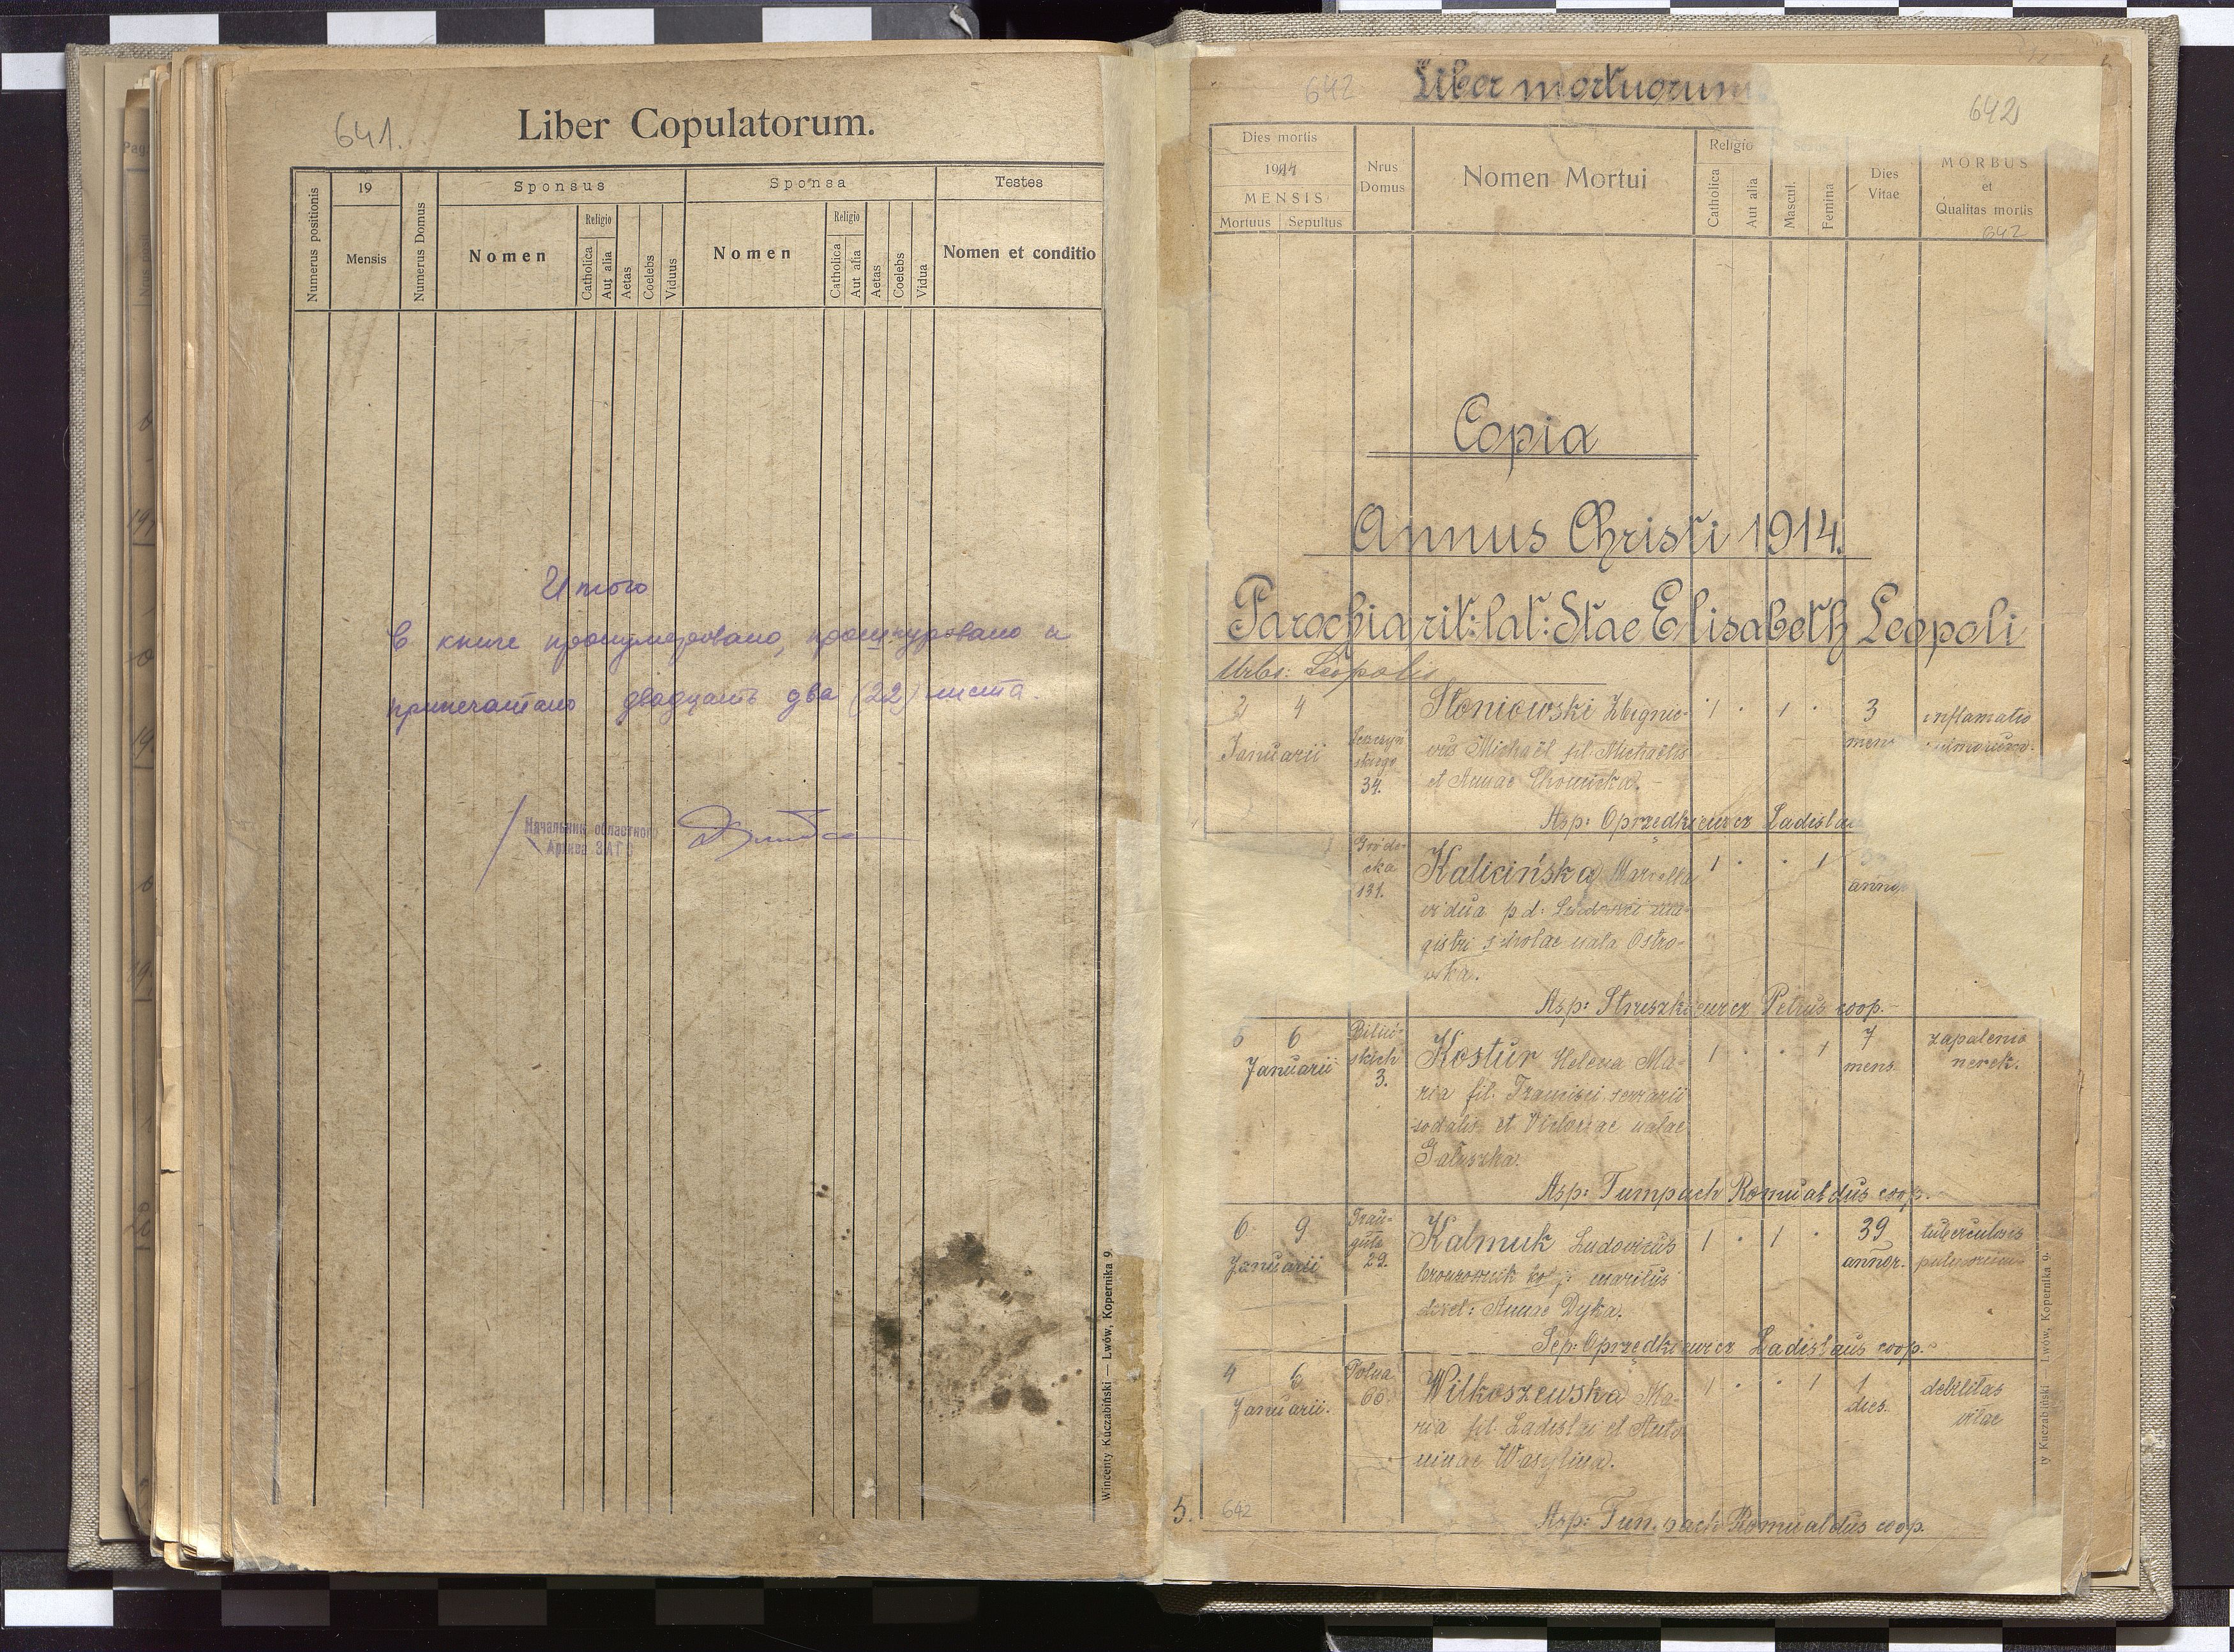 641.
Liber Copulatorum.
Numerus positionis
19
Mensis
Numerus Domus
Sponsus
Nomen
Religio
Catholica
Aut alia
Aetas
Coelebs
Viduus
Sponsa
Nomen
Religio
Catholica
Aut alia
Aetas
Coelebs
Vidua
Testes
Nomen et conditio
Итого
В книге пронумеровано, прошнуровано и
припечатано двадцать два (22) листа.
Начальник областного
Архива ЗАГС
Wincenty Kuczabiński — Lwów, Kopernika 9.
642
Liber mortuorum
642
Dies mortis
1914
MENSIS
Mortuus Sepultus
Nrus
Domus
Nomen Mortui
Religio
Catholica
Aut alia
Mascul.
Femina
Dies
Vitae
MORBUS
et
Qualitas mortis
642
Copia
Annus Christi 1914.
Parochia rit: lat: Stae Elisabeth Leopoli
Urbs: Leopolis
2 4 Słoniowski Zbignie- 1 · 1 · 3 inflamatio
Januarii vus Michaël fil. Michaëlis mens
34. et Annae
Asp: Oprzędkiewicz Ladislaus
Gróde-
cka
131.
Kalicińska 1 · · 1
vidua p.d. ma- annor
gistri scholae nata Ostro-
wska.
Asp: Struszkiewicz Petrus coop.
5 6 Biliń- Kostur Helena Ma- 1 · · 1 7 zapalenie
Januarii skich 3. ria fil. Francisci serrarii mens. nerek.
sodalis et Victoriae natae
Gałuszka.
Asp: Tumpach Romualdus coop.
6 9 Trau- Kalmuk Ludovicus 1 · 1 · 39 tuberculosis
Januarii guta 29. bronzownik maritus annor. pulmonum
derel: Annae Dyka.
Sep: Oprzędkiewicz Ladislaus coop.
4 6 Polna Wilkoszewska Ma- 1 · · 1 1 debilitas
Januarii. 66. ria fil. Ladislai et Anto- dies. vitae
ninae Wasylina.
Asp: Tumpach Romualdus coop.
5.
642
ty Kuczabiński Lwów, Kopernika 9.